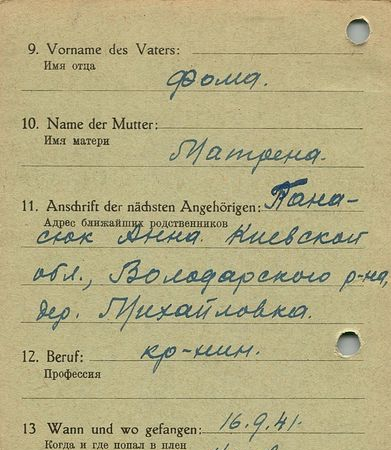 9. Vorname des Vaters:
Имя отца
Фома.
10. Name der Mutter:
Имя матери
Матрена.
11. Anschrift der nächsten Angehörigen: Пана-
Адрес ближайших родственников
сюк Анна. Киевской
обл., Володарского р-на,
дер. Михайловка.
12. Beruf: кр-нин.
Профессия
13 Wann und wo gefangen: 16.9.41.
Когда и где попал в плен